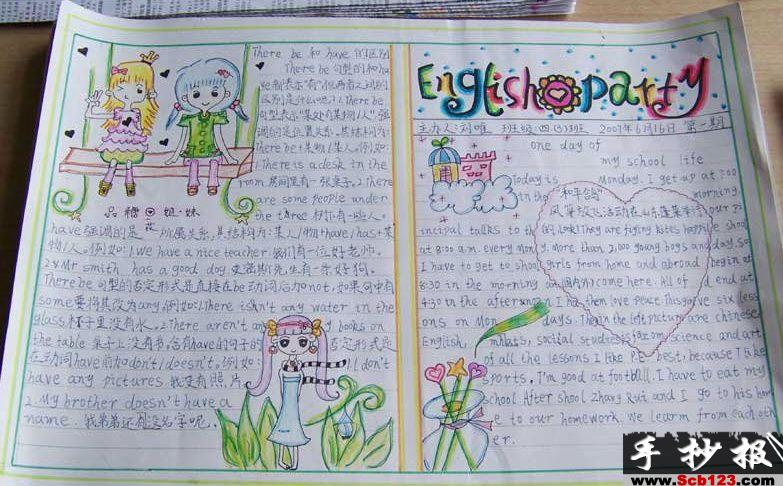 There be 和 have 的区别
There be 句型的和ha
ve都表示"有"但两者之间的
区别是什么呢?1.There be
句型表示"某处有某物/人"强
调的是位置关系,其结构为:T
here be+某物/人。例如:
1.There is a desk in the
room.房间里有一张桌子.2.There
are some people under
the tree 树下有一些人。
品糖姐·妹花
have强调的是所属关系,其结构为:某人/物+have/has+某
物/人。例如:1.We have a nice teacher.我们有一位好老师。
2.Mr smith has a good dog 史密斯先生有一条好狗。
There be句型的否定形式是直接在be动词后加not,如果句中有
some要将其改为any,例如:1.There isn't any water in the
glass.杯子里没有水。2.There aren't any books on
the table 桌子上没有书。含有have的句子的否定形式是
在动词have前加don't/doesn't。例如:1.I don't
have any pictures.我没有照片
2.My brother doesn't have a
name.我弟弟还没名字呢。
English party
主办人:刘唯 班级:四(3)班 2007年6月16日 第一期
one day of
my school life
Today is Monday. I get up at 7:00
in the morning.
"和平合鸟"
风筝放飞活动在山东蓬莱举行
Our pr
incipal talks to the
school
at 8:00 a.m. every Monday.
They are flying kites happily
More than 2,000 young boys and
girls from home and abroad
(国内外) come here. All of
them love peace. This
The in the left picture are chinese
day. So
I have to get to school
begin at
8:30 in the morning and
end at
4:30 in the afternoon. I have six less
ons on Mondays.
English, maths, social studies, science and art
of all the lessons I like P.E best, because I like
sports, I'm good at football. I have to eat my
school After shool Zhang Rui and I go to his hom
e to our homework. We learn from each oth
er.
手抄报
www.Scb123.com